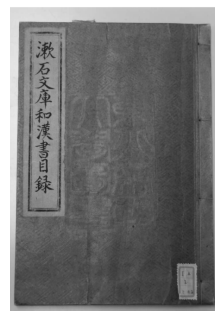 漱石文庫和漢書目録